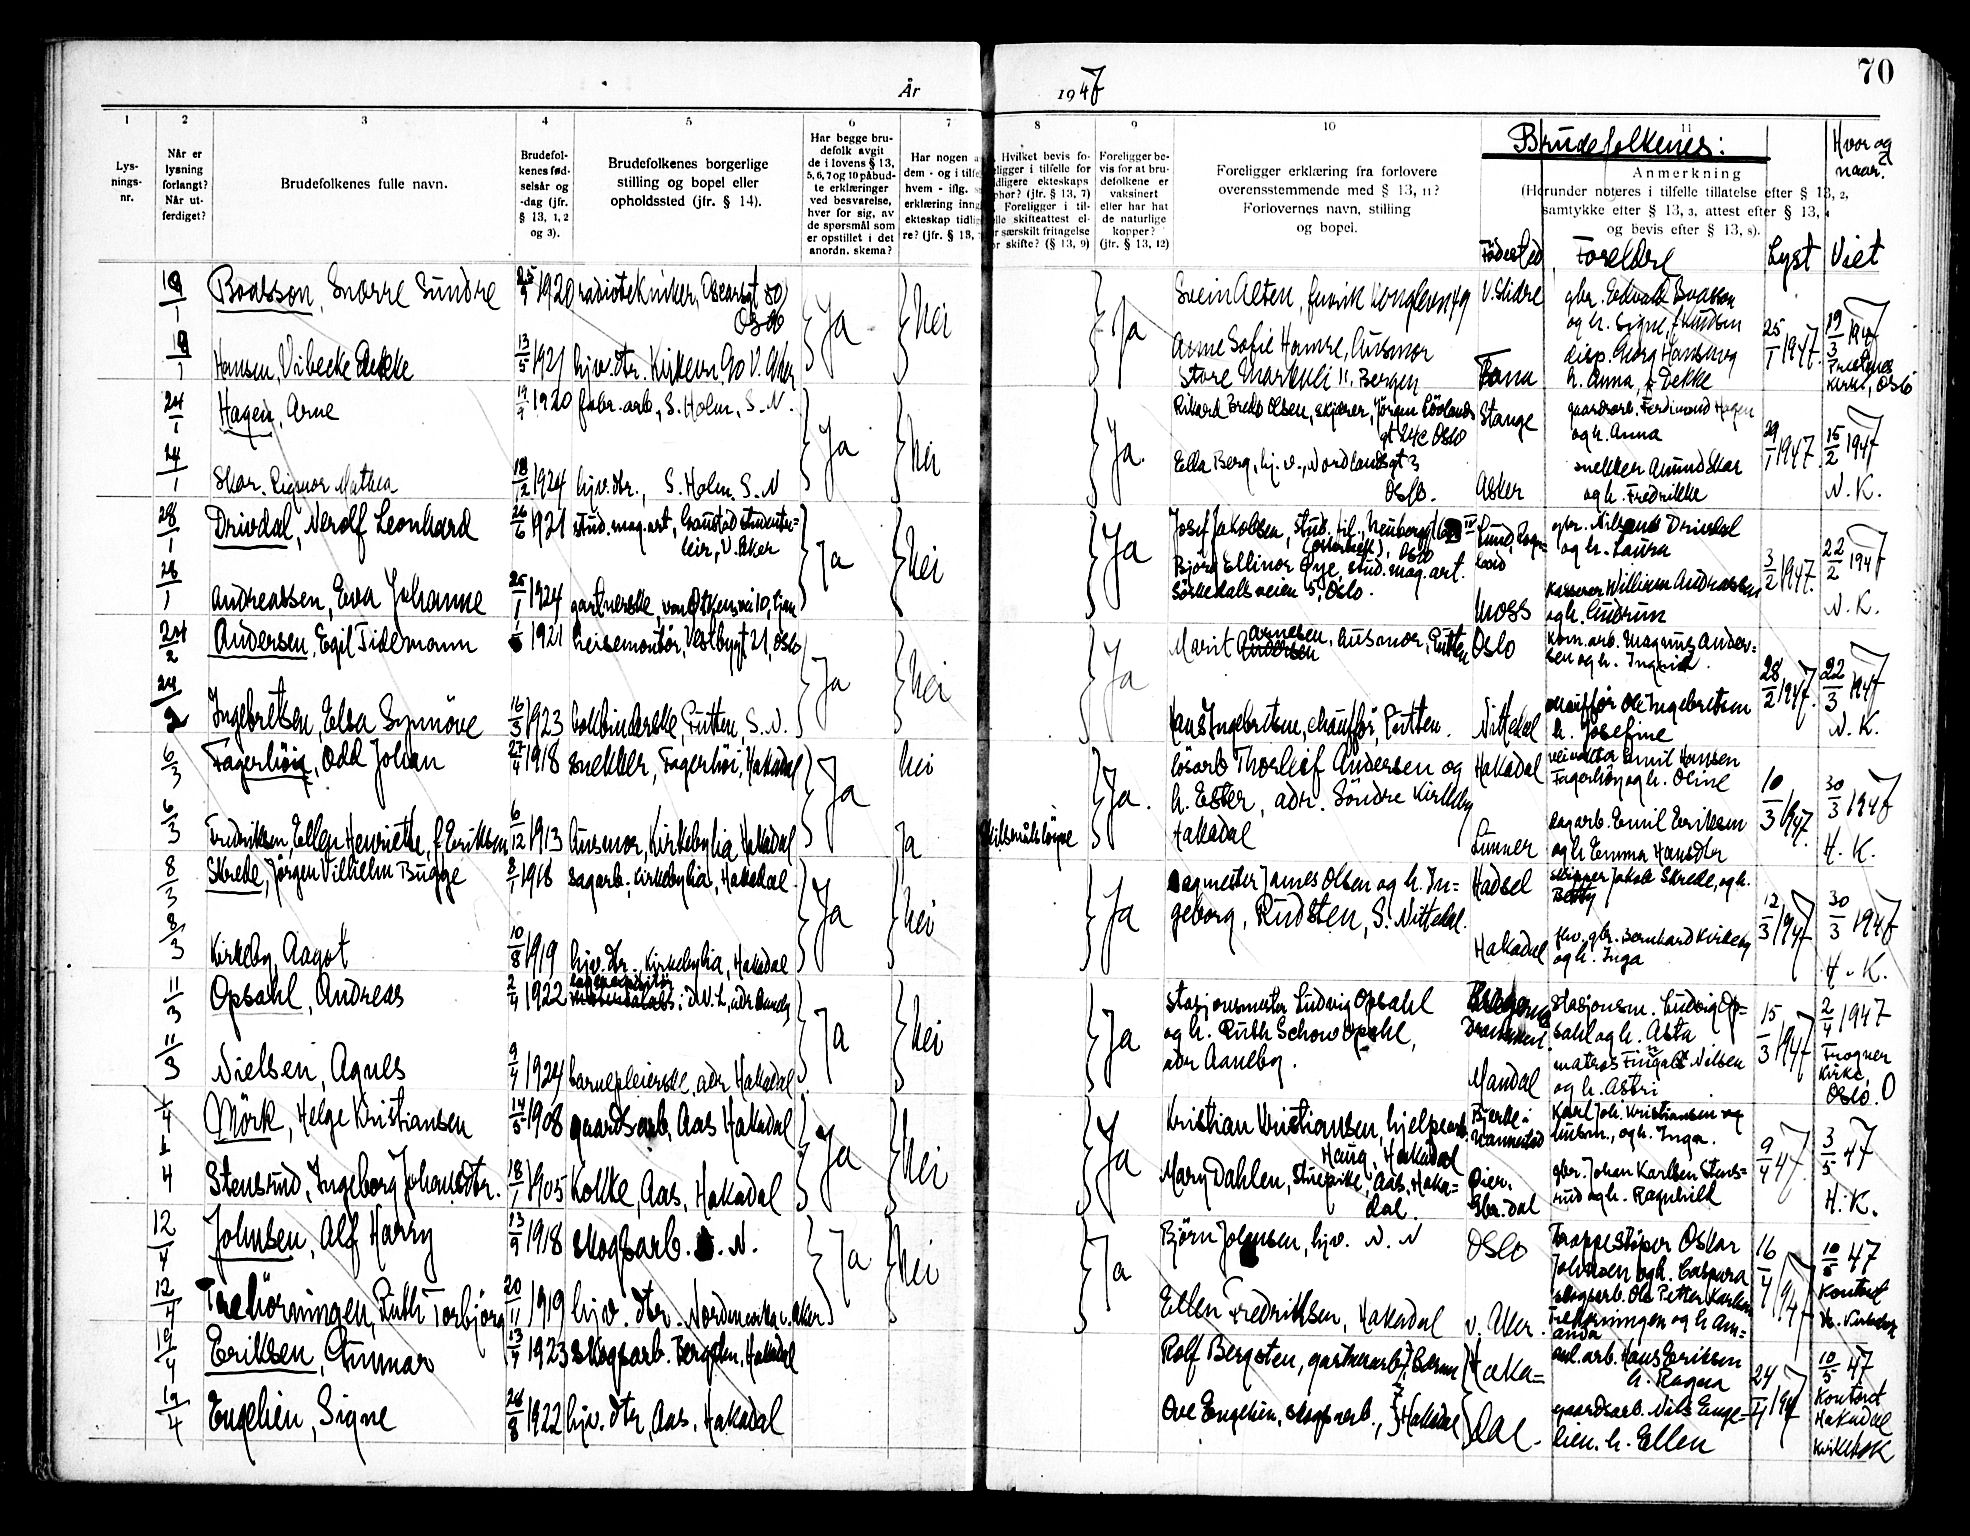 70
År
1947
1
2
3
4
5
6
7
8
9
10
11
Lys-
nings-
nr.
Når er
lysning
forlangt?
Når ut-
ferdiget?
Brudefolkenes fulle navn.
Brudefol-
kenes fød-
selsår og
-dag (jfr.
§ 13, 1, 2
og 3).
Brudefolkenes borgerlige
stilling og bopel eller
opholdssted (jfr. § 14).
Har begge bru-
defolk avgit
de i lovens § 13,
5, 6, 7 og 10 påbud-
te erklæringer
ved besvarelse,
hver for sig, av
de spørsmål som
er opstillet i det
anordn. skema?
Har nogen a
dem - og i tilfe
hvem - iflg. s
erklæring inng
ekteskap tidlig
re? (jfr. § 13,
Hvilket bevis fo-
ligger i tilfelle for
dligere ekteskaps
phør? (jfr. § 13, 7)
Foreligger i til-
lle skifteattest el-
r særskilt fritagelse
or skifte? (§ 13, 9)
Foreligger be-
vis for at bru-
defolkene er
vaksinert
eller har hat
de naturlige
kopper?
(jfr. § 13, 12)
Foreligger erklæring fra forlovere
overensstemmende med § 13, 11?
Forlovernes navn, stilling
og bopel.
Brudefolkenes:
Anmerkning
(Herunder noteres i tilfelle tillatelse efter § 13, 2,
samtykke efter § 13, 3, attest efter § 13, 4
og bevis efter § 13, 8).
Hvor og
naar?
Födested
Foreldre
Lyst
Viet
Boasson, Snorre Sundre
1920 radiotekniker, Oscarsgt 50
Oslo
Ja
nei
Ja
Svein Alten,
V. Slidre
gbr. Edvald Boasson
og h. Signe, f. Knudsen
25/1 1947
19/3 1947
Hansen, Vibecke Dekke
13/5 1921 hjv. dtr. Kirkevn. 90 V. Aker
Anne Sofie Hamre, husmor
Store Markvei 11. Bergen
Fana
disp. Georg Hansen og
h. Anna, f. Dekke
Kirke, Oslo
24/1 Hagen, Arne
19/9 1920 fabr. arb, S. Holm, S. N.
Ja
nei
Ja.
Rikard Bredo Olsen, skjærer, Jörgen Lövlands
gt 24c Oslo
Stange
gaardsarb. Ferdinand Hagen
og h. Anna
29/1 1947
15/2 1947
N. K.
24/1 Skar, Rigmor Mathea
18/12 1924 hjv. dtr., S. Holm, S. N
Ella Berg, hj. v., Nordlandsgt 3
Oslo.
Asker
snekker Amund Skar
og h. Fredrikke
28/1 Drivdal, Nerolf Leonhard
26/6 1921 stud. mag. art, Gaustad studenter=
leir, V. Aker
Ja
nei
Ja
Josef Jakobsen, stud. fil.,
Oslo
Björg Ellinor Øye, stud. mag. art.
Sörkedalsveien 5, Oslo.
Lund, Roga=
land
og h. Laura
3/2 1947.
22/2 1947
N. K.
28/1 Andreassen, Eva Johanne
25/1 1924 gartnerske,
Moss
kasserer William Andreassen
og h. Gudrun
24/2 Andersen, Egil Tidemann
1921 heisemontör, Vestbygt. 21, Oslo
Ja
nei
Ja
Marit Arnesen, husmor, Rutten
Oslo
kom. arb. Magnus Ander=
sen og h. Ingrid.
28/2 1947.
22/3 1947
N. K.
24/2 Ingebretsen, Elsa Synnöve
16/3 1923 bokbinderske, Rutten, S. N.
Hans Ingebretsen, chaufför, Rutten.
Nittedal
chaufför Ole Ingebretsen
h. Josefine
6/3 Fagerhöi, Odd Johan
27/4 1918 snekker, Fagerhöi, Hakadal
Ja
nei
Ja.
lösarb Thorleif Andersen og
h. Ester, adr. Söndre Kirkeby
Hakadal
Hakadal
Emil Hansen
Fagerhöy og h. Oline
10/3 1947.
30/3 1947
H. K.
6/3 Fredriksen, Ellen Henriette, f. Eriksen
6/12 1913 husmor, Kirkebylia Hakadal
Ja
Skilsmålslöyve
Lunner
sagarb. Emil Eriksen
og h Emma Hansdtr
8/3 Skrede, Jörgen Vilhelm Bugge
1918 sagarb. Kirkebylia, Hakadal.
Ja
nei
Ja
sagmester James Olsen og h. In=
geborg, Rudsten, S. Nittedal.
Hadsel
skipper Jakob Skrede, og h.
Betty
12/3 1947
30/3 1947
H. K.
8/3 Kirkeby, Aagot
10/8 1919 hjv. dtr., Kirkebylia, Hakadal
Hakadal
fhv. gbr. Bernhard Kirkeby
og h. Inga
11/3 Opsahl, Andreas
2/4 1922
Ja
nei
Ja
stasjonsmester Ludvig Opsahl
og h. Ruth Schou Opsahl,
adr Aaneby.
Drammen.
stasjonsm. Ludvig Op=
sahl og h. Asta
15/3 1947
2/4 1947
Frogner
kirke,
Oslo.
11/3 Nielsen, Agnes
9/4 1924 barnepleierske, adr Hakadal
Mandal
matros Fingalf Nilsen
og h. Astri
1/4 Mörk, Helge Kristiansen
14/5 1908 gaardsarb, Aas Hakadal
Ja
nei
Ja
Kristian Kristiansen, hjelpearb.
Haug, Hakadal
Bjerke i
Nannestad
Karl Joh. Kristiansen og
husm., og h. Inga.
9/4 47
3/5 47
H. K.
1/4 Stensrud, Ingeborg Johansdtr.
18/1 1905 kokke, Aas, Hakadal
Mary Dahlen, stuepike, Aas, Haka=
dal.
Øier.
Gbr. dal
gbr. Johan Karlsen Stens=
rud og h. Ragnhild
12/4 Johnsen, Alf Harry
13/9 1918 skogsarb. S. N.
Ja
nei
Ja
Björn Johnsen, hjv. N. N
Oslo
Trappestöper Oskar
Johnsen og h. Caspara
16/4 1947
10/5 47
Kontoret
12/4 Trehörningen, Ruth Torbjörg
20/11 1919 hjv. dtr. Nordmarka v. Aker
Ellen Fredriksen, Hakadal
v. Aker.
skogsarb. Ole Petter Karlsen
Trehörningen og h Am=
anda
19/4 Eriksen, Gunnar
13/4 1923 skogsarb. Bergsten, Hakadal
Rolf Bergsten, gartnerarb,
Haka=
dal.
anl. arb. Hans Eriksen
h. Ragna
24/4 1947
10/5 47
Kontoret
Hakadal
19/4 Engelien, Signe
26/8 1922 hjv. dtr, Aas, Hakadal
Ove Engelien, skogsarb., Hakadal
gaardsarb. Nils Enge=
lien. h. Ellen